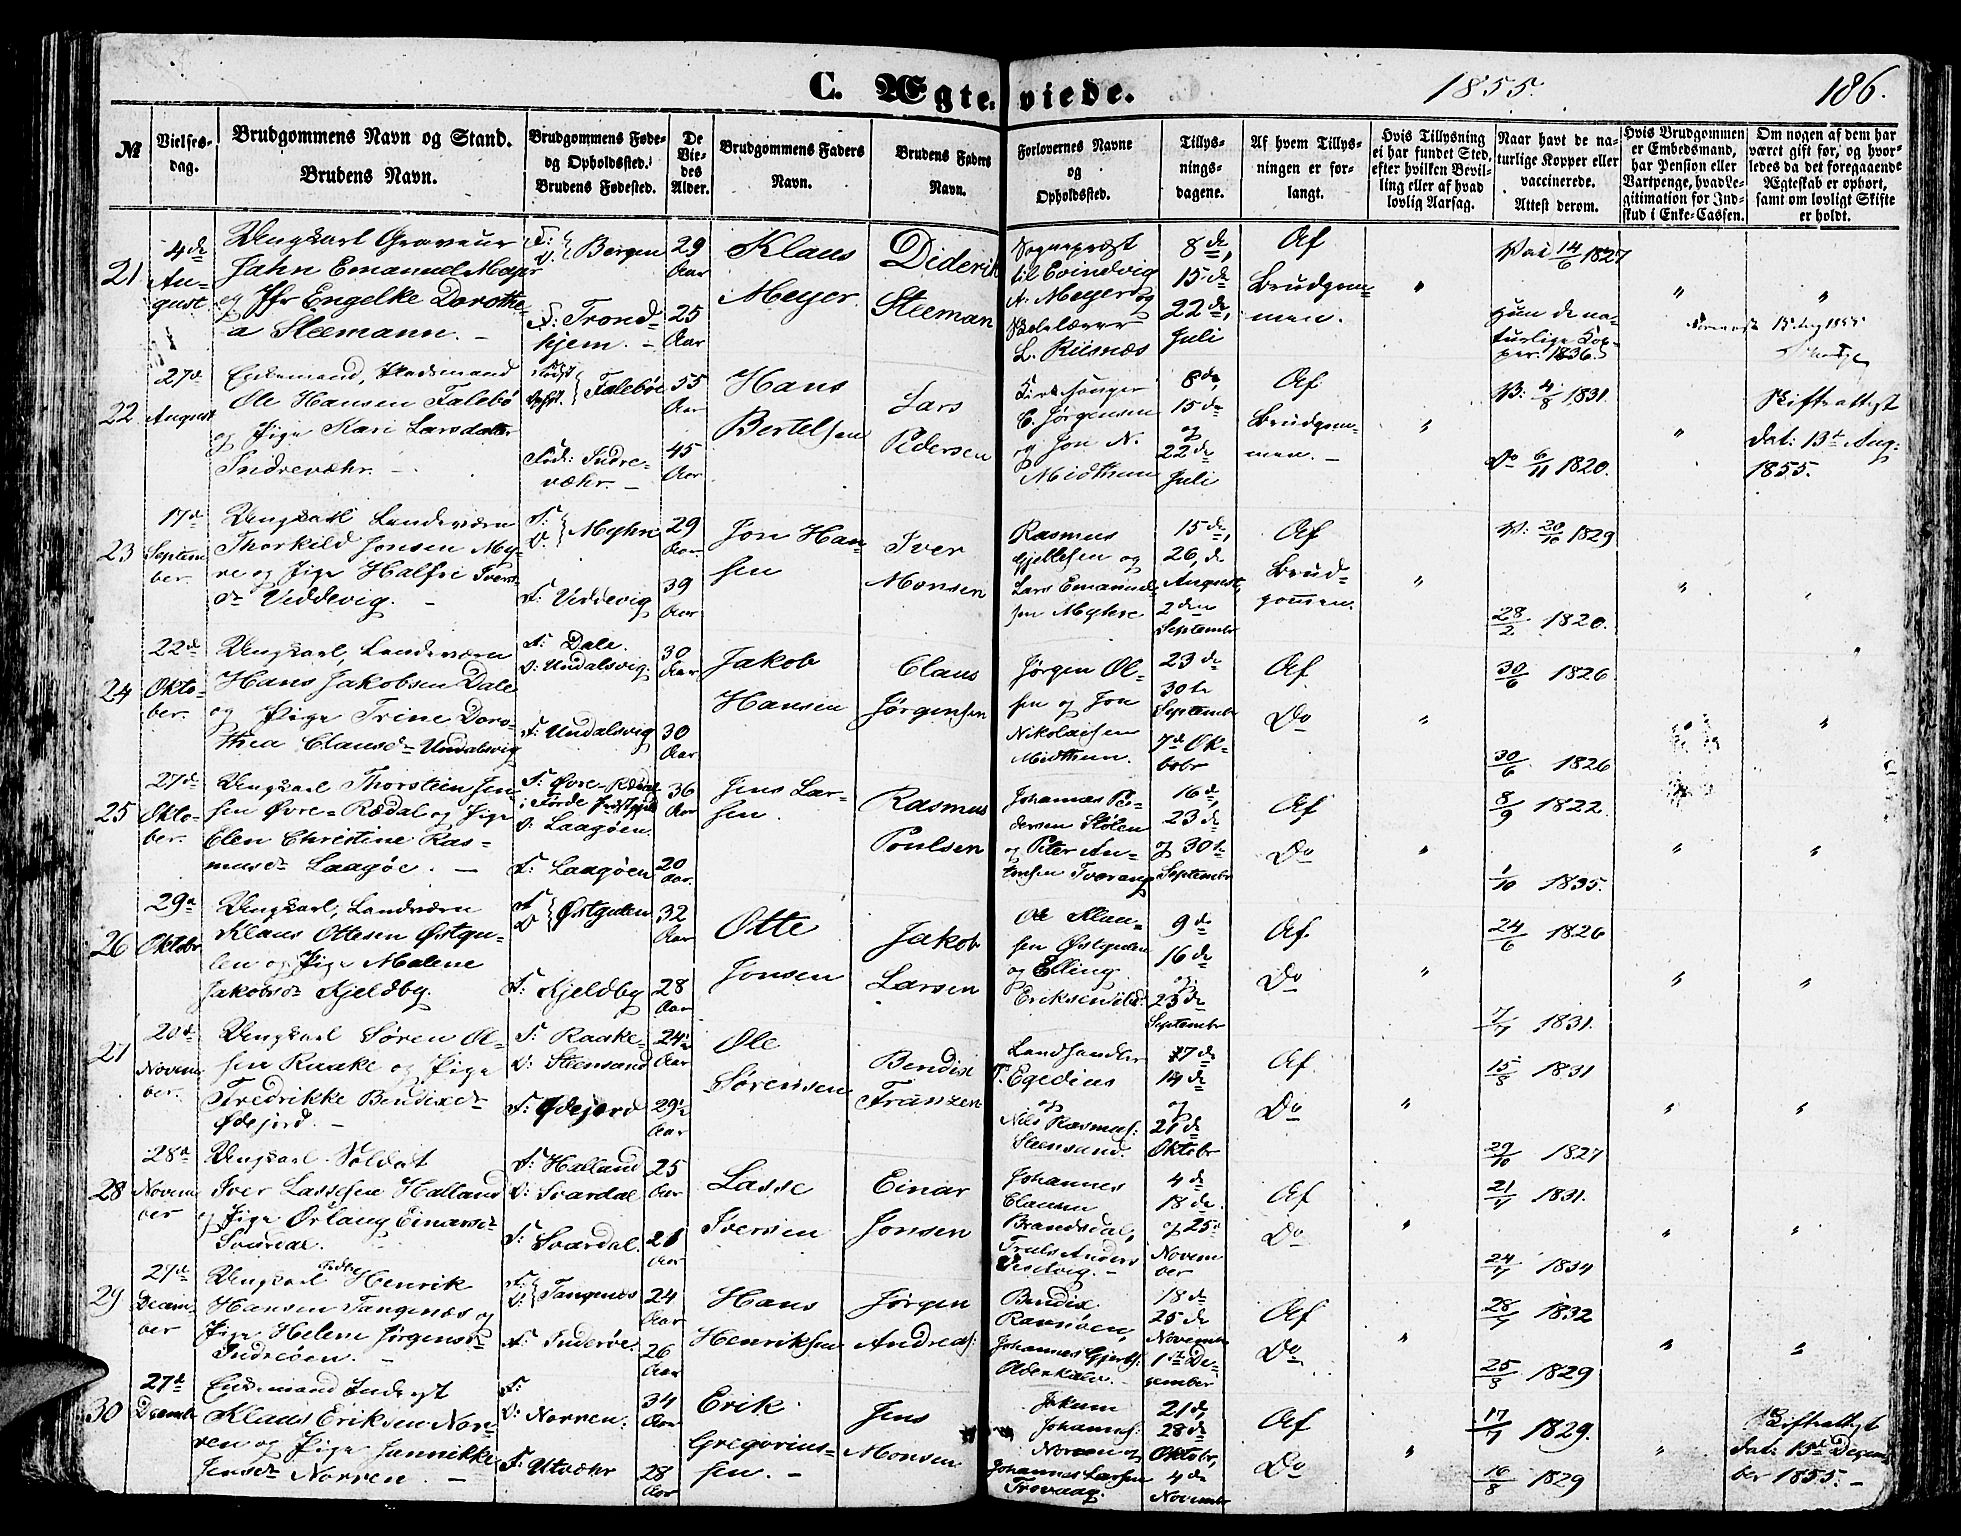 C. Ægte-viede.
1855.
186.
№
Vielses-
dag.
Brudgommens Navn og Stand.
Brudens Navn.
Brudgommens Føde-
og Opholdssted.
Brudens Fødested.
De
Vie-
des
Alder.
Brudgommens Faders
Navn.
Brudens Faders
Navn.
Forlovernes Navne
og
Opholdssted.
Tillys-
nings-
dagene.
Af hvem Tillys-
ningen er for-
langt.
Hvis Tillysning
ei har fundet Sted,
efter hvilken Bevil-
ling eller af hvad
lovlig Aarsag.
Naar havt de na-
turlige Kopper eller
vaccinerede.
Attest derom.
Hvis Brudgommen
er Embedsmand,
har Pension eller
Vartpenge, hvad Le-
gitimation for Ind-
skud i Enke-Cassen.
Om nogen af dem har
været gift før, og hvor-
ledes da det foregaaende
Ægteskab er ophørt,
samt om lovligt Skifte
er holdt.
21
4de
Au-
gust
Ungkarl Graveur
Jahn Emanuel Meyer
og Jfr Engelke Dorothe-
a Steemann.
F:
O:
Bergen
F: Trond-
hjem.
29
Aar
25
Aar
Klaus
Meyer.
Diderik
Steeman
Sognepræst
til Evindvig
A. Meyer og
Skolelærer
L. Riisnæs
8de,
15de
22de,
Juli
Af
Brudgom-
men.
Vac 14/6 1827
Hun de na-
turlige Kop-
per. 1836.
22
27de
August
Enkemand, Pladsmand
Ole Hansen Falebø
og Pige Kari Larsdatter
Indrevæhr.
Født
Ophst.
Falebøe
Fød: Indre-
væhr.
55
Aar
45
Aar
Hans
Bertelsen
Lars
Pedersen
Kirkesanger
E. Jørgensen
og Jon N.
Midthun
8de,
15de
og
22de
Juli
Af
Brudgom-
men.
V: 4/8 1831.
Do 6/11 1820.
Skifteattest
dat: 13de Aug:
1855.
23
17de
Septem-
ber.
Ungkarl Landeværn
Thorkild Jonsen My-
re og Pige Halfri Ivers-
dr Veddevig.
F:
O:
Myhre
F: Veddevig
29
Aar
39
Aar
Jon Han-
sen
Iver
Monsen
Rasmus
Gjellesen og
Lars Emanuel-
sen Myhre
15de,
26de
August,
2den
Septembr
Af
Brud-
gommen.
V: 20/10 1829
28/2 1820.
24
22de
Okto-
ber.
Ungkarl, Landeværn
Hans Jakobsen Dale
og Pige Trine Doro-
thea Clausdr Undalsvig
F: Dale.
O: Undalsvig
F: Undalsvig
30
Aar
30
Aar
Jakob
Hansen
Claus
Jørgensen
Jørgen Ol-
sen og Jon
Nikolaisen
Midthun.
23de
30te
Septembr
7de Ok-
tobr
Af
Do
30/6 1826
30/6 1826
25
27de
Okto-
ber.
Ungkarl Thorsteen Jen-
sen Øvre-Rædal og Pige
Elen Christine Ras-
musdr Laagøe.
F: Øvre-Rædal
i Førde Præstegjeld
O: Laagøen.
F: Laagøen
36
Aar
20
Aar.
Jens Lar-
sen.
Rasmus
Poulsen
Johannes Pe-
dersen Stølen
og Peter An-
16de,
23de
og 30te
Septembr
Af
Do
8/9 1822.
1/10 1835.
26
29de
Oktobr
Ungkarl, Landværn
Klaus Ottesen Østgu-
len og Pige Malene
Jakobsdr Kjeldby.
F
O
Østgulen
F: Kjeldby
32
Aar
28
Aar
Otte
Jonsen
Jakob
Larsen
Ole Klau-
sen Østgulen
og Elling
Eriksen
9de
16de
og
23de
Septembr
Af.
Do
24/6 1826
7/7 1831.
27
20de
Novem
ber.
Ungkarl Søren Ol-
sen Raake og Pige
Fredrikke Bendixdr
Ødejord.
F: Raake
O: Steensund
F: Ødejord
24½
Aar
29½
Aar
Ole
Sørensen
Bendix
Franzen
Landhandler
T. Egedius
og
Nils Rasmus:
Steensund.
7de
14de
og
21de
Oktobr
Af
Do
15/8 1831
29/10 1827
28
28de
Novem
ber
Ungkarl Soldat
Iver Lassesen Halland
og Pige Ørlaug Einarsdr
Svardal.
F: Halland
O: Svardal
F: Svardal.
25
Aar
21
Aar
Lasse
Iversen
Einar
Jonsen
Johannes
Clausen
Brandsdal,
Truls Anders
4de
18de.
og 25de
Novem
ber
Af
Do
21/7 1831.
24/7 1834
29
27de
Decem
ber
Ungkarl Henrik
Hansen Tangenæs og
Pige Helene Jørgensdr
Indreøen.
F:
O:
Tangenæs
F: Inderøe.
24
Aar
26
Aar
Hans
Henriksen
Jørgen
Andreas:
Bendix
Ravnøen,
Johannes Gjerts:
18de
25de
Novembr
1ste De-
cember
Af
Do
28/7 1832
25/8 1829
30
27de
Decembr
Enkemand Inderst
Klaus Eriksen Nor-
ren og Pige Jannikke
Jensdr Norren.
F:
O: Norren.
F: Utvæhr
34
Aar
28
Aar
Erik
Gregorius-
sen.
Jens
Monsen
Jokum
Johannes:
Norren og
Johannes Larsen
Trovaag.
21de,
28de
Oktobr,
4de
Novembr
Af
Do
17/7 1829.
16/8 1829
Skifteattest
dat: 15de Decem-
ber 1855.